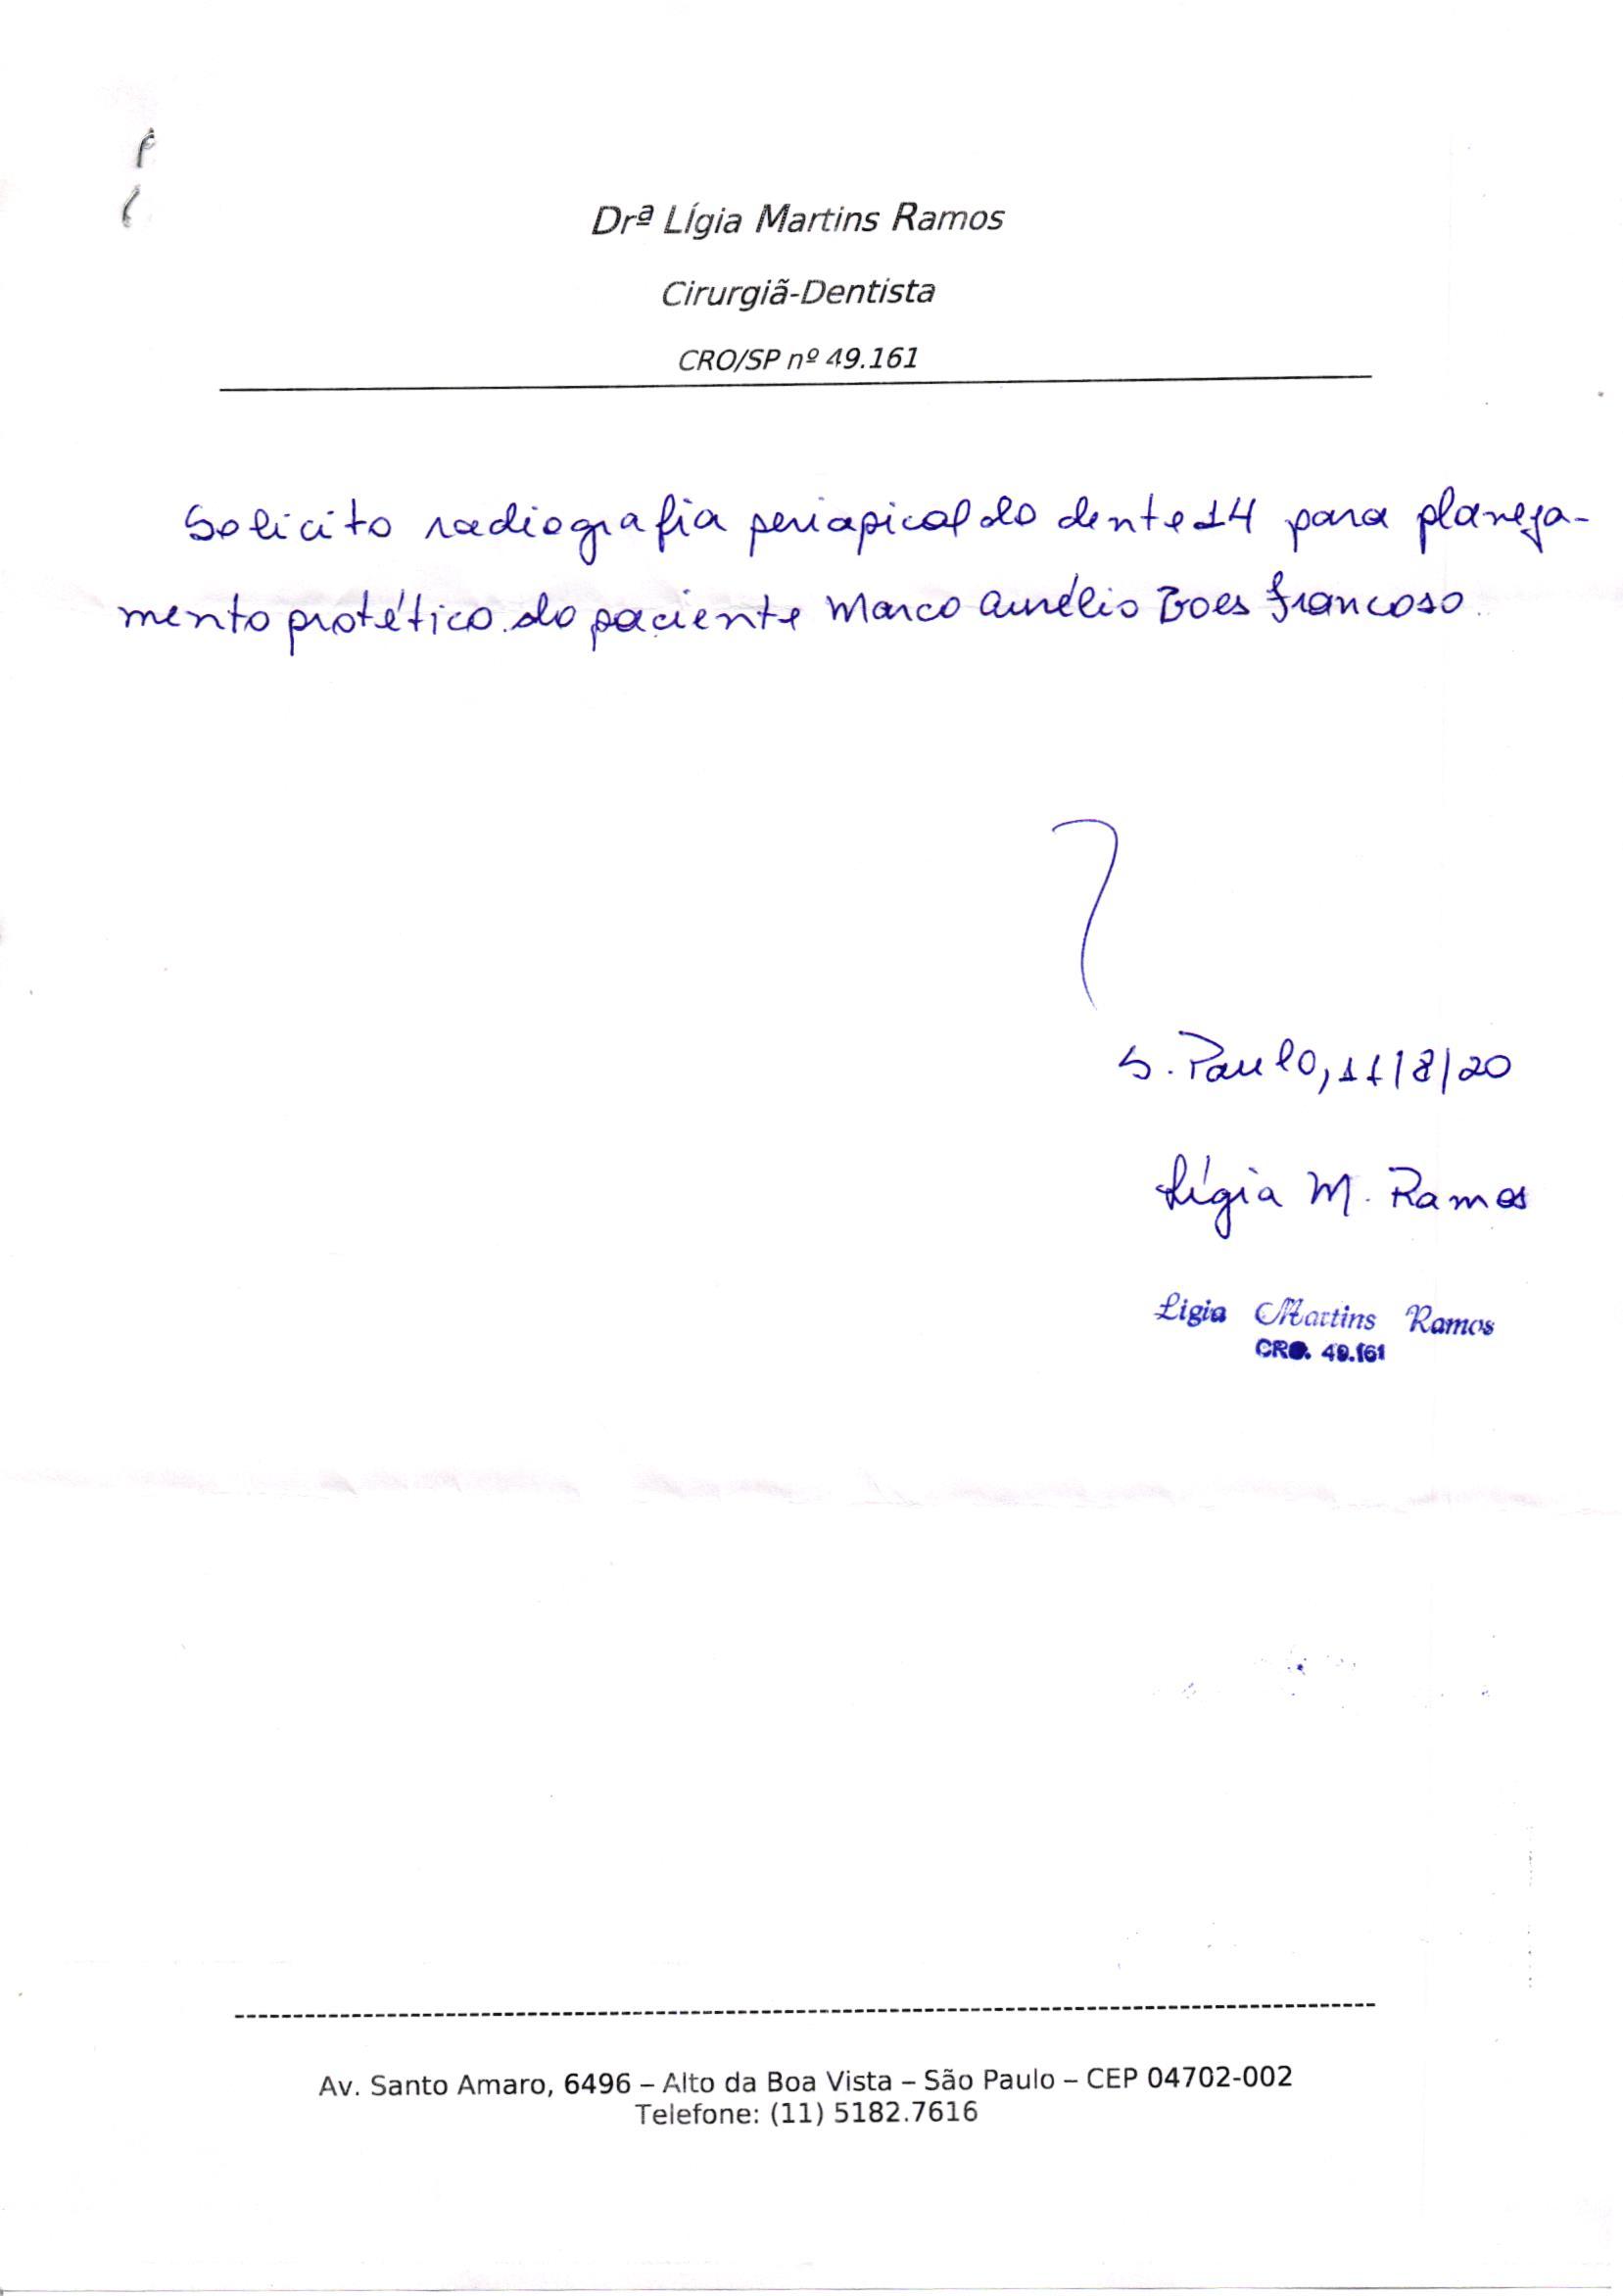 Drª Lígia Martins Ramos
Cirurgiã-Dentista
CRO/SP nº 49.161
Solicito radiografia periapical do dente 14 para planeja-
mento protético do paciente Marco Aurélio Boes Francoso.
S. Paulo, 11/8/20
Lígia M. Ramos
Ligia Martins Ramos
CRO. 49.161
--------------------------------------------------------------------------------
Av. Santo Amaro, 6496 – Alto da Boa Vista – São Paulo – CEP 04702-002
Telefone: (11) 5182.7616